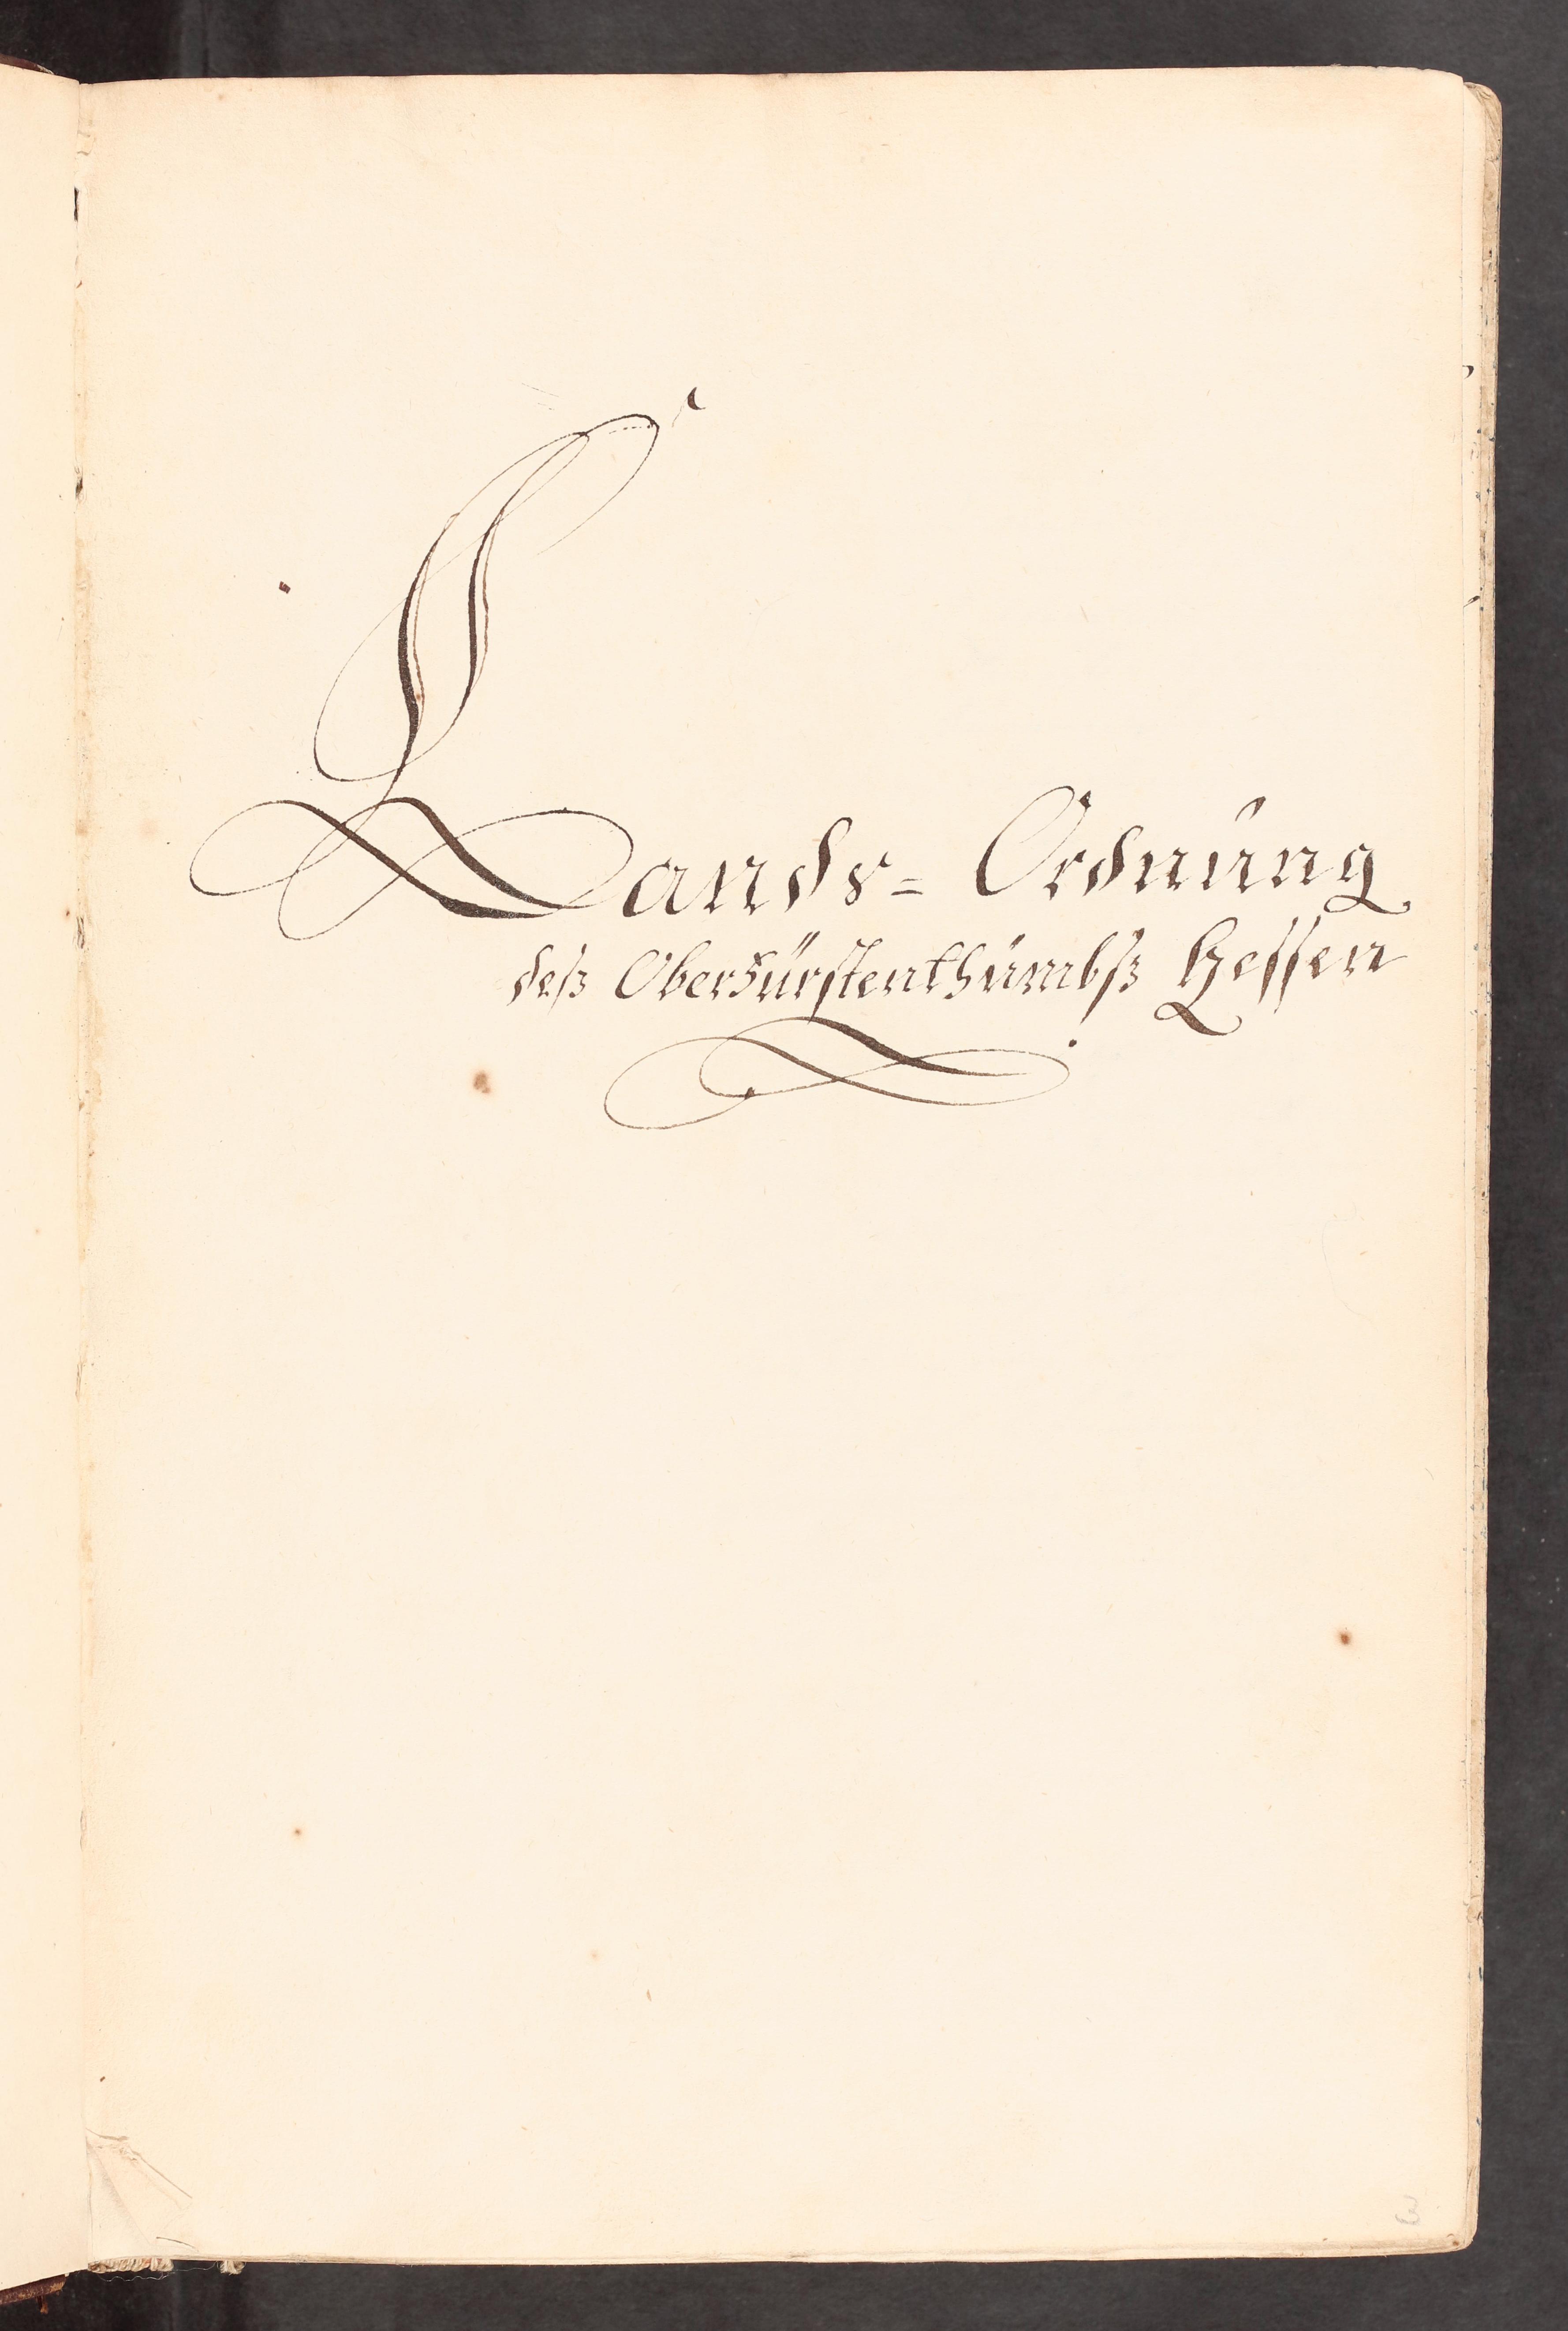 Lands= Ordnung
deß Oberfürstenthumbß Hessen
3